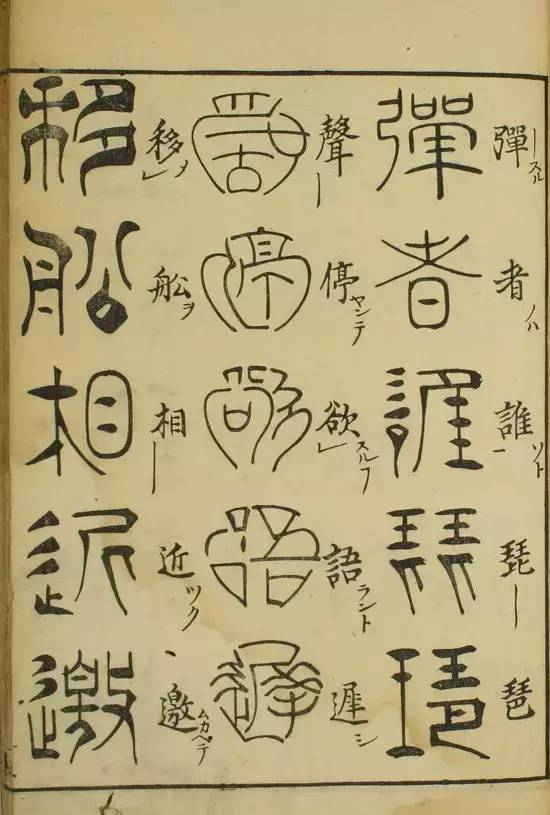 彈ースル者ノハ誰ソト琵ー琶
彈者誰琵琶
聲ー停ヤンテ欲スルフ語ラント遲シ
聲停欲語遲
移ノ舩ヲ相ー近ツク邀ムカヘテ
移舩相近邀